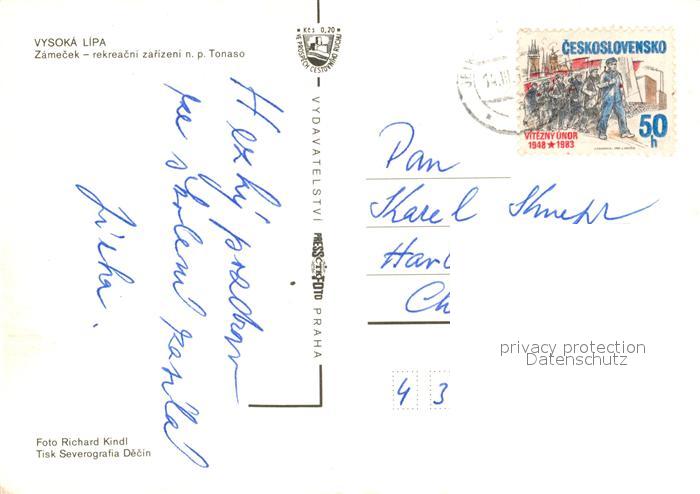 VYSOKÁ LÍPA
Zámeček – rekreační zařízení n. p. Tonaso
Kčs 0,20
VE PROSPĚCH CESTOVNÍHO RUCHU
Hezký pozdrav
ze školení zasílá
Jirka.
VYDAVATELSTVÍ PRESSFOTO PRAHA
ČESKOSLOVENSKO
VÍTĚZNÝ ÚNOR
1948 ★ 1983
50 h
Pan
Karel
Hav
Ch
privacy protection
Datenschutz
4 3
Foto Richard Kindl
Tisk Severografia Děčín